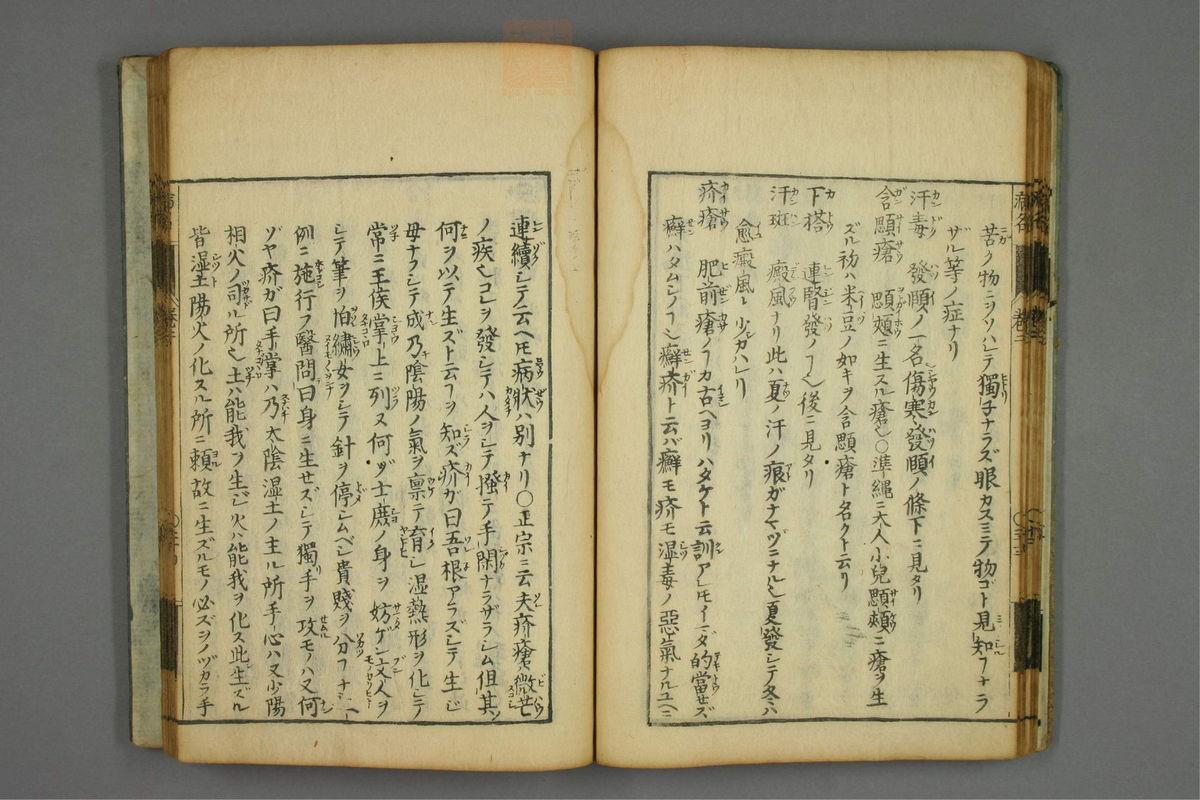 苦ク物ニヲソハレテ獨子ナラズ眼カスミテ物ゴト見知フナラ
ザル等ノ症ナリ
汗毒 發頤ノ一名傷寒發頤ノ條下ニ見タリ
含顋瘡 顋頰ニ生スル瘡也○準繩ニ大人小兒顋頰ニ瘡ヲ生
ズル初ハ米豆ノ如キヲ含顋瘡ト名クト云リ
下搭 連腎發ノ也後ニ見タリ
汗斑 癜風ナリ此ハ夏ノ汗ノ痕ガナマヅニナル也夏發シテ冬ハ
愈癜風ト少カハレリ
疥瘡 肥前瘡ノカ古ヘヨリハタケト云訓アレモイマダ的當セズ
癬ハタムシノ也癬疥ト云バ癬モ疥モ湿毒ノ惡氣ナルユヘニ
連續シテ云ヘモ病狀ハ別ナリ○正宗ニ云夫疥瘡微芒
ノ疾也コレヲ發シテハ人ヲシテ搔テ手閑ナラザラシム但其
何ヲ以テ生ズト云フヲ知ズ疥ガ曰吾根アラズシテ生ジ
母ナラシテ成乃陰陽ノ氣ヲ禀テ育シ湿熱形ヲ化シテ
常ニ王侯掌上ニ列ヌ何ゾ士庶ノ身ヲ妨ゲン文人ヲ
シテ筆ヲ怕繡女ヲシテ針ヲ停シムベシ貴賤ヲ分フナシ一
例ニ施行フ醫問曰身ニ生セズシテ獨手ヲ攻モノハ又何
ゾヤ疥ガ曰手掌ハ乃太陰湿土ノ主ル所手心ハ又少陽
相火ノ司ル所也土ハ能我ヲ生ジ火ハ能我ヲ化ス此生ズル
皆湿土陽火ノ化スル所ニ頼故ニ生ズルモノ必ズヲノヅカラ手